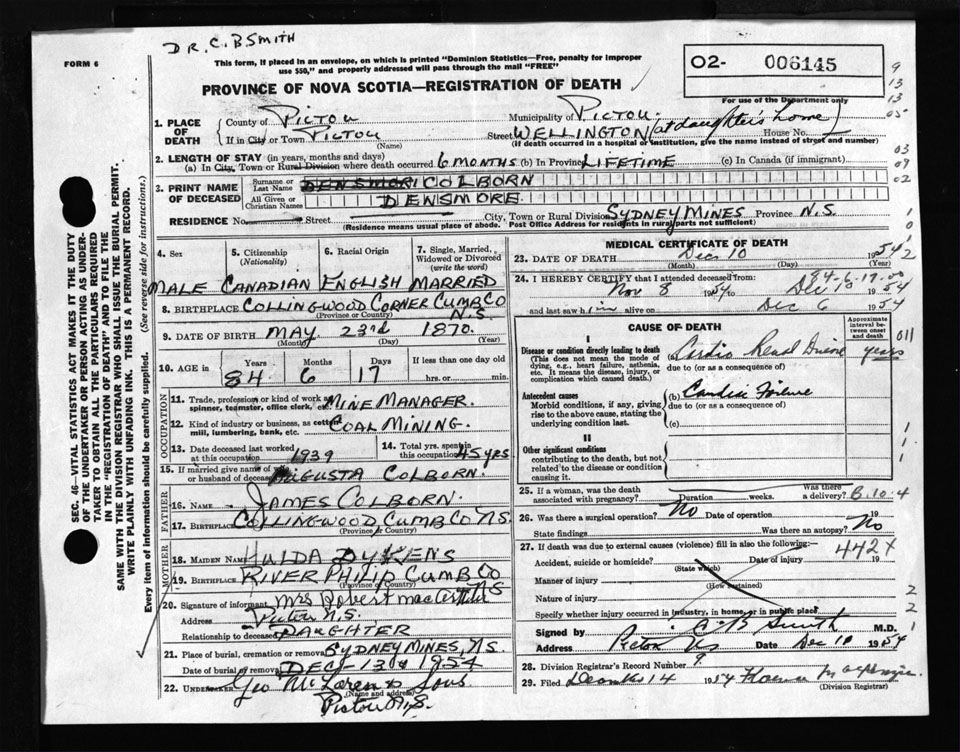 DR. C. B SMITH
FORM 6
This form, if placed in an envelope, on which is printed "Dominion Statistics—Free, penalty for improper
use $50," and properly addressed will pass through the mail "FREE"
O2- 006145
PROVINCE OF NOVA SCOTIA—REGISTRATION OF DEATH
For use of the Department only
9
13
13
05
03
09
02
1. PLACE OF DEATH
County of PICTOU Municipality of PICTOU.
If in City or Town PICTOU Street WELLINGTON (at daughter's home) House No.
(Name) (If death occurred in a hospital or institution, give the name instead of street and number)
2. LENGTH OF STAY (in years, months and days)
(a) In City, Town or Rural Division where death occurred 6 MONTHS (b) In Province LIFETIME (c) In Canada (if immigrant)
3. PRINT NAME OF DECEASED
Surname or Last Name DENSMORE COLBORN
All Given or Christian Names DENSMORE
RESIDENCE No. Street City, Town or Rural Division SYDNEY MINES Province N.S.
(Residence means usual place of abode. Post Office Address for residents in rural parts not sufficient)
4. Sex MALE
5. Citizenship (Nationality) CANADIAN
6. Racial Origin ENGLISH
7. Single, Married, Widowed or Divorced (write the word) MARRIED
8. BIRTHPLACE COLLINGWOOD CORNER CUMB CO N.S.
(Province or Country)
9. DATE OF BIRTH MAY 23rd 1870.
(Month) (Day) (Year)
10. AGE in Years Months Days If less than one day old
84 6 17 hrs. or min.
OCCUPATION
11. Trade, profession or kind of work as spinner, teamster, office clerk, etc. MINE MANAGER.
12. Kind of industry or business, as cotton mill, lumbering, bank, etc. COAL MINING.
13. Date deceased last worked at this occupation 1939
14. Total yrs. spent in this occupation 45 yrs
15. If married give name of wife or husband of deceased AUGUSTA COLBORN.
FATHER
16. Name JAMES COLBORN.
17. Birthplace COLLINGWOOD, CUMB CO N.S.
(Province or Country)
MOTHER
18. MAIDEN NAME HULDA DYKENS
19. BIRTHPLACE RIVER PHILIP CUMB CO NS
(Province or Country)
20. Signature of informant Mrs Robert
Address Pictou N.S.
Relationship to deceased DAUGHTER
21. Place of burial, cremation or removal SYDNEY MINES, N.S.
Date of burial or removal DEC - 13th 1954
22. UNDERTAKER Geo McLaren & Sons
(Name and address)
Pictou N.S.
MEDICAL CERTIFICATE OF DEATH
23. DATE OF DEATH Dec 10 1954
(Month) (Day) (Year)
84-6-17-00
24. I HEREBY CERTIFY that I attended deceased from:
Nov 8 1954 to Dec 10 1954
and last saw him alive on Dec 6 1954
CAUSE OF DEATH
Approximate interval between onset and death
I
Disease or condition directly leading to death
(This does not mean the mode of dying, e.g., heart failure, asthenia, etc. It means the disease, injury, or complication which caused death.)
(a) Cardio Renal Disease years
due to (or as a consequence of)
Antecedent causes
Morbid conditions, if any, giving rise to the above cause, stating the underlying condition last.
(b) Cardiac Failure
due to (or as a consequence of)
(c)
II
Other significant conditions
contributing to the death, but not related to the disease or condition causing it.
011
25. If a woman, was the death associated with pregnancy? Duration weeks. Was there a delivery? B-10-4
26. Was there a surgical operation? No Date of operation 19
State findings Was there an autopsy? No
27. If death was due to external causes (violence) fill in also the following:—
442X
Accident, suicide or homicide? Date of injury 19
(State which)
Manner of injury
(How sustained)
Nature of injury
Specify whether injury occurred in industry, in home, or in public place
Signed by C B Smith M.D.
Address Pictou NS Date Dec 10 1954
28. Division Registrar's Record Number 9
29. Filed December 14 1954 Florence
(Division Registrar)
SEC. 46—VITAL STATISTICS ACT MAKES IT THE DUTY
OF THE UNDERTAKER OR PERSON ACTING AS UNDER-
TAKER TO OBTAIN ALL THE PARTICULARS REQUIRED
IN THE "REGISTRATION OF DEATH" AND TO FILE THE
SAME WITH THE DIVISION REGISTRAR WHO SHALL ISSUE THE BURIAL PERMIT.
WRITE PLAINLY WITH UNFADING INK. THIS IS A PERMANENT RECORD.
Every item of Information should be carefully supplied. (See reverse side for instructions.)